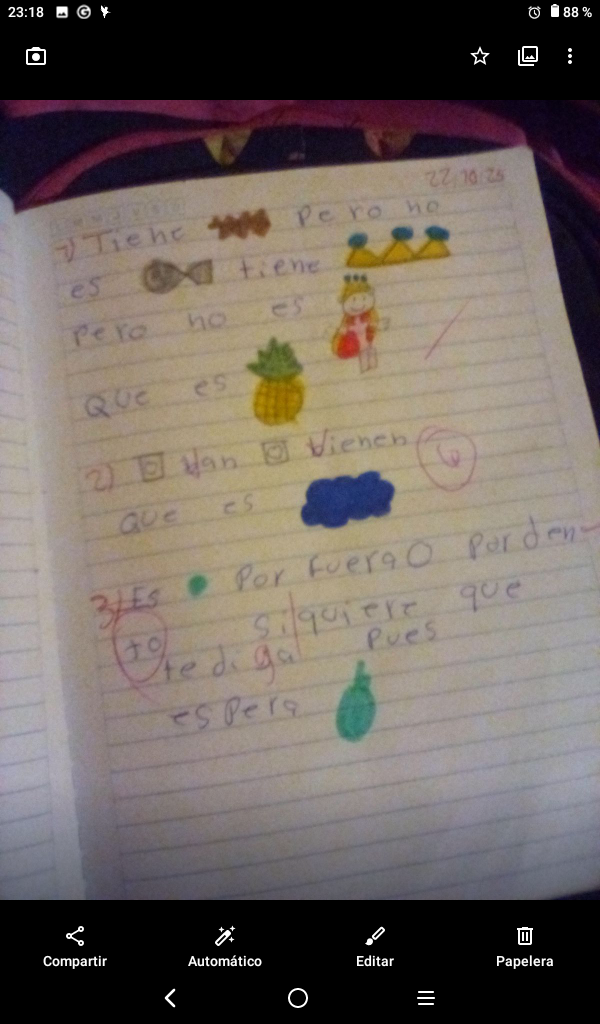 23:18
88 %
22/10/25
1) Tiene pero no
es tiene
Pero no es
Que es
2) Van Vienen
Que es
3) Es Por fuera O Por den-
tro si quiere que
te diga Pues
espera
Compartir
Automático
Editar
Papelera